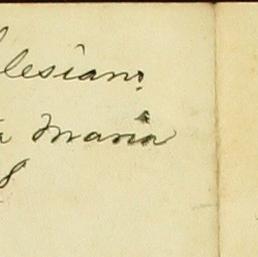 lesians
a Maria
8